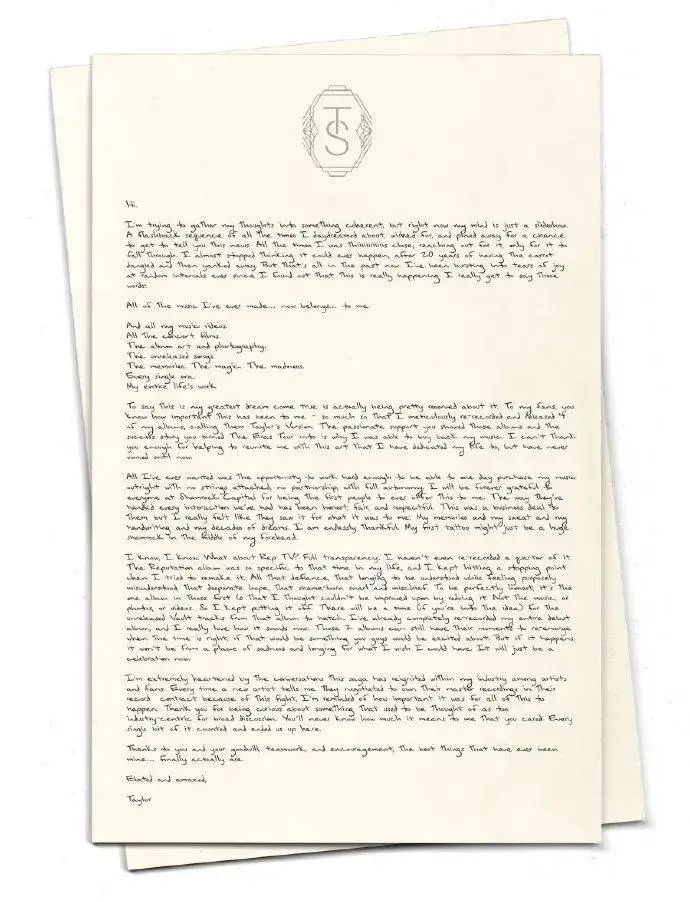 TS
Hi.
I'm trying to gather my thoughts into something coherent, but right now my mind is just a slideshow.
A flashback sequence of all the times I daydreamed about, wished for, and pined away for a chance
to get to tell you this news. All the times I was thiiiiiiiis close, reaching out for it, only for it to
fall through. I almost stopped thinking it could ever happen, after 20 years of having the carrot
dangled and then yanked away. But that's all in the past now. I've been bursting into tears of joy
at random intervals ever since I found out that this is really happening. I really get to say these
words:
All of the music I've ever made... now belongs... to me.
And all my music videos.
All the concert films.
The album art and photography.
The unreleased songs.
The memories. The magic. The madness.
Every single era.
My entire life's work.
To say this is my greatest dream come true is actually being pretty reserved about it. To my fans, you
know how important this has been to me - so much so that I meticulously re-recorded and released 4
of my albums, calling them Taylor's Version. The passionate support you showed those albums and the
success story you turned The Eras Tour into is why I was able to buy back my music. I can't thank
you enough for helping to reunite me with this art that I have dedicated my life to, but have never
owned until now.
All I've ever wanted was the opportunity to work hard enough to be able to one day purchase my music
outright with no strings attached, no partnership, with full autonomy. I will be forever grateful to
everyone at Shamrock Capital for being the first people to ever offer this to me. The way they've
handled every interaction we've had has been honest, fair, and respectful. This was a business deal to
them but I really felt like they saw it for what it was to me: My memories and my sweat and my
handwriting and my decades of dreams. I am endlessly thankful. My first tattoo might just be a huge
shamrock in the middle of my forehead.
I know, I know. What about Rep TV? Full transparency: I haven't even re-recorded a quarter of it.
The Reputation album was so specific to that time in my life, and I kept hitting a stopping point
when I tried to remake it. All that defiance, that longing to be understood while feeling purposely
misunderstood, that desperate hope, that shame-born snarl and mischief. To be perfectly honest, it's the
one album in those first 6 that I thought couldn't be improved upon by redoing it. Not the music, or
photos, or videos. So I kept putting it off. There will be a time (if you're into the idea) for the
unreleased Vault tracks from that album to hatch. I've already completely re-recorded my entire debut
album, and I really love how it sounds now. Those 2 albums can still have their moments to re-emerge
when the time is right, if that would be something you guys would be excited about. But if it happens,
it won't be from a place of sadness and longing for what I wish I could have. It will just be a
celebration now.
I'm extremely heartened by the conversations this saga has reignited within my industry among artists
and fans. Every time a new artist tells me they negotiated to own their master recordings in their
record contract because of this fight, I'm reminded of how important it was for all of this to
happen. Thank you for being curious about something that used to be thought of as too
industry-centric for broad discussion. You'll never know how much it means to me that you cared. Every
single bit of it counted and ended us up here.
Thanks to you and your goodwill, teamwork, and encouragement, the best things that have ever been
mine... finally actually are.
Elated and amazed,
Taylor